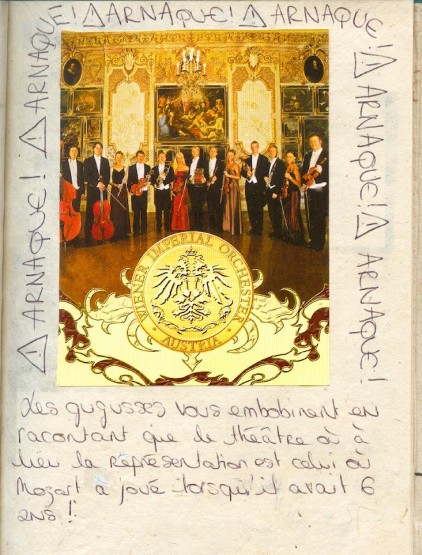 ⚠ ARNAQUE! ⚠ ARNAQUE! ⚠ ARNAQUE! ⚠ ARNAQUE! ⚠ ARNAQUE! ⚠ ARNAQUE!
WIENER IMPERIAL ORCHESTER
AUSTRIA
Les gugusses vous embobinent en
racontant que le théâtre où à
lieu la représentation est celui où
Mozart a joué lorsqu'il avait 6
ans!